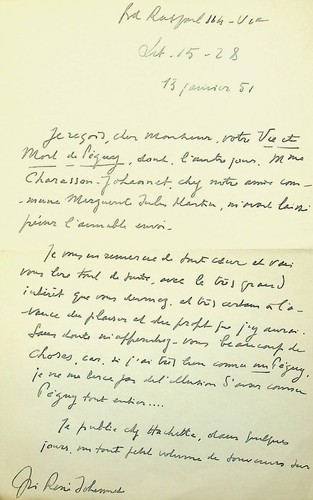 Bd Raspail 114 - VIe
Lit. 15-28
13 janvier 51
Je reçois, cher Monsieur, votre Vie et
Mort de Péguy, dont, l'autre jour, Mme
Charasson-Johannet, chez notre amie com-
mune Marguerite Jules Martin, m'avait laissé
prévoir l'aimable envoi.
Je vous en remercie de tout cœur et vais
vous lire tout de suite, avec le très grand
intérêt que vous devinez, et très certain à l'a-
vance du plaisir et du profit que j'y aurai.
Sans doute m'apprendrez-vous beaucoup de
choses, car, si j'ai très bien connu un Péguy,
je ne me berce pas de l'illusion d'avoir connu
Péguy tout entier....
Je publie chez Hachette, dans quelques
jours, un tout petit volume de souvenirs sur